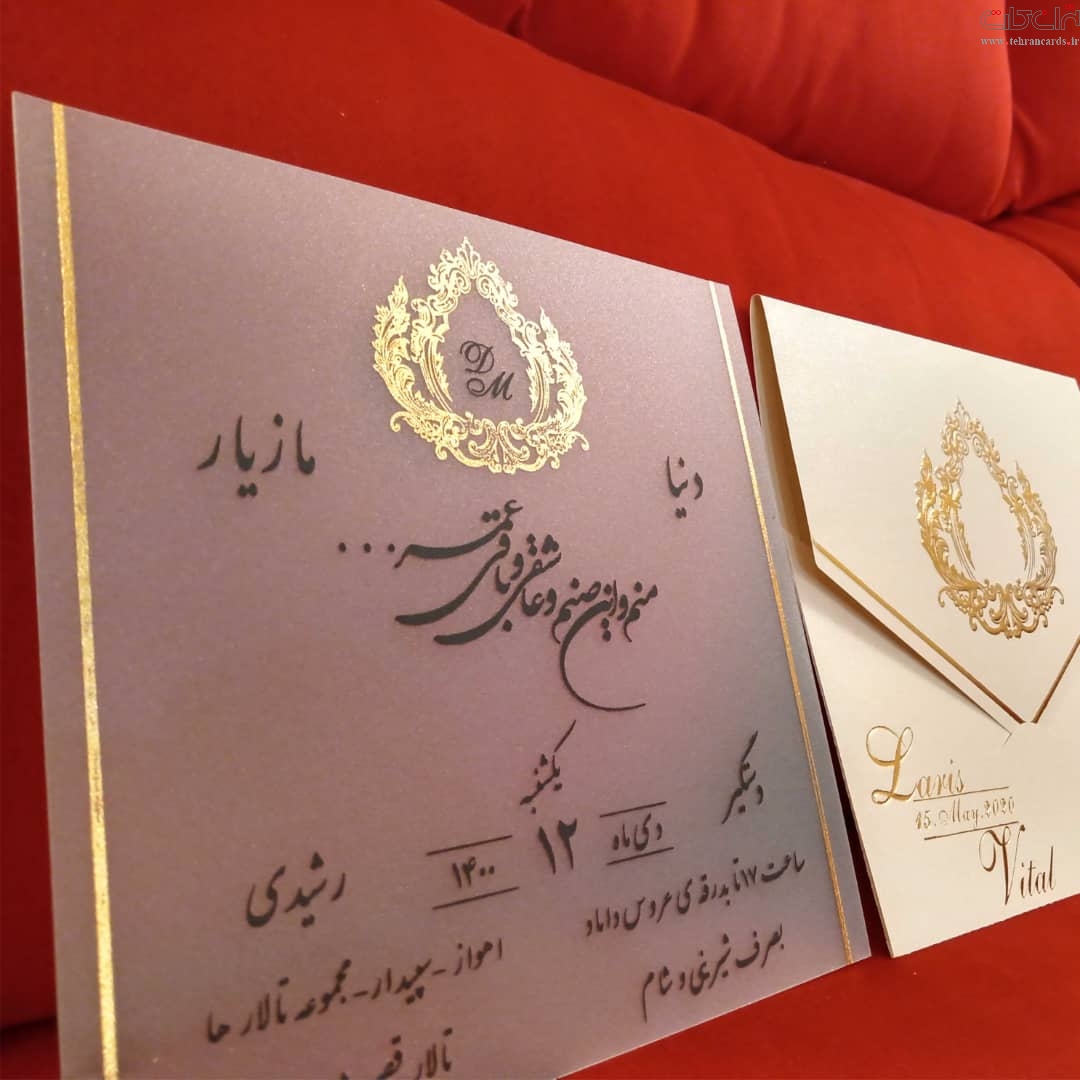 تهران کارت
www.tehrancards.ir
D
M
دنیا
مازیار
منم و این صنم و عاشقی و باقی عمر...
یکشنبه
دستگیر
دی ماه
۱۲
۱۴۰۰
رشیدی
ساعت ۱۷ تا بدرقه ی عروس داماد
بصرف شیرینی و شام
اهواز - سپیدار - مجموعه تالار ها
تالار
Laris
15.May.2020
Vital